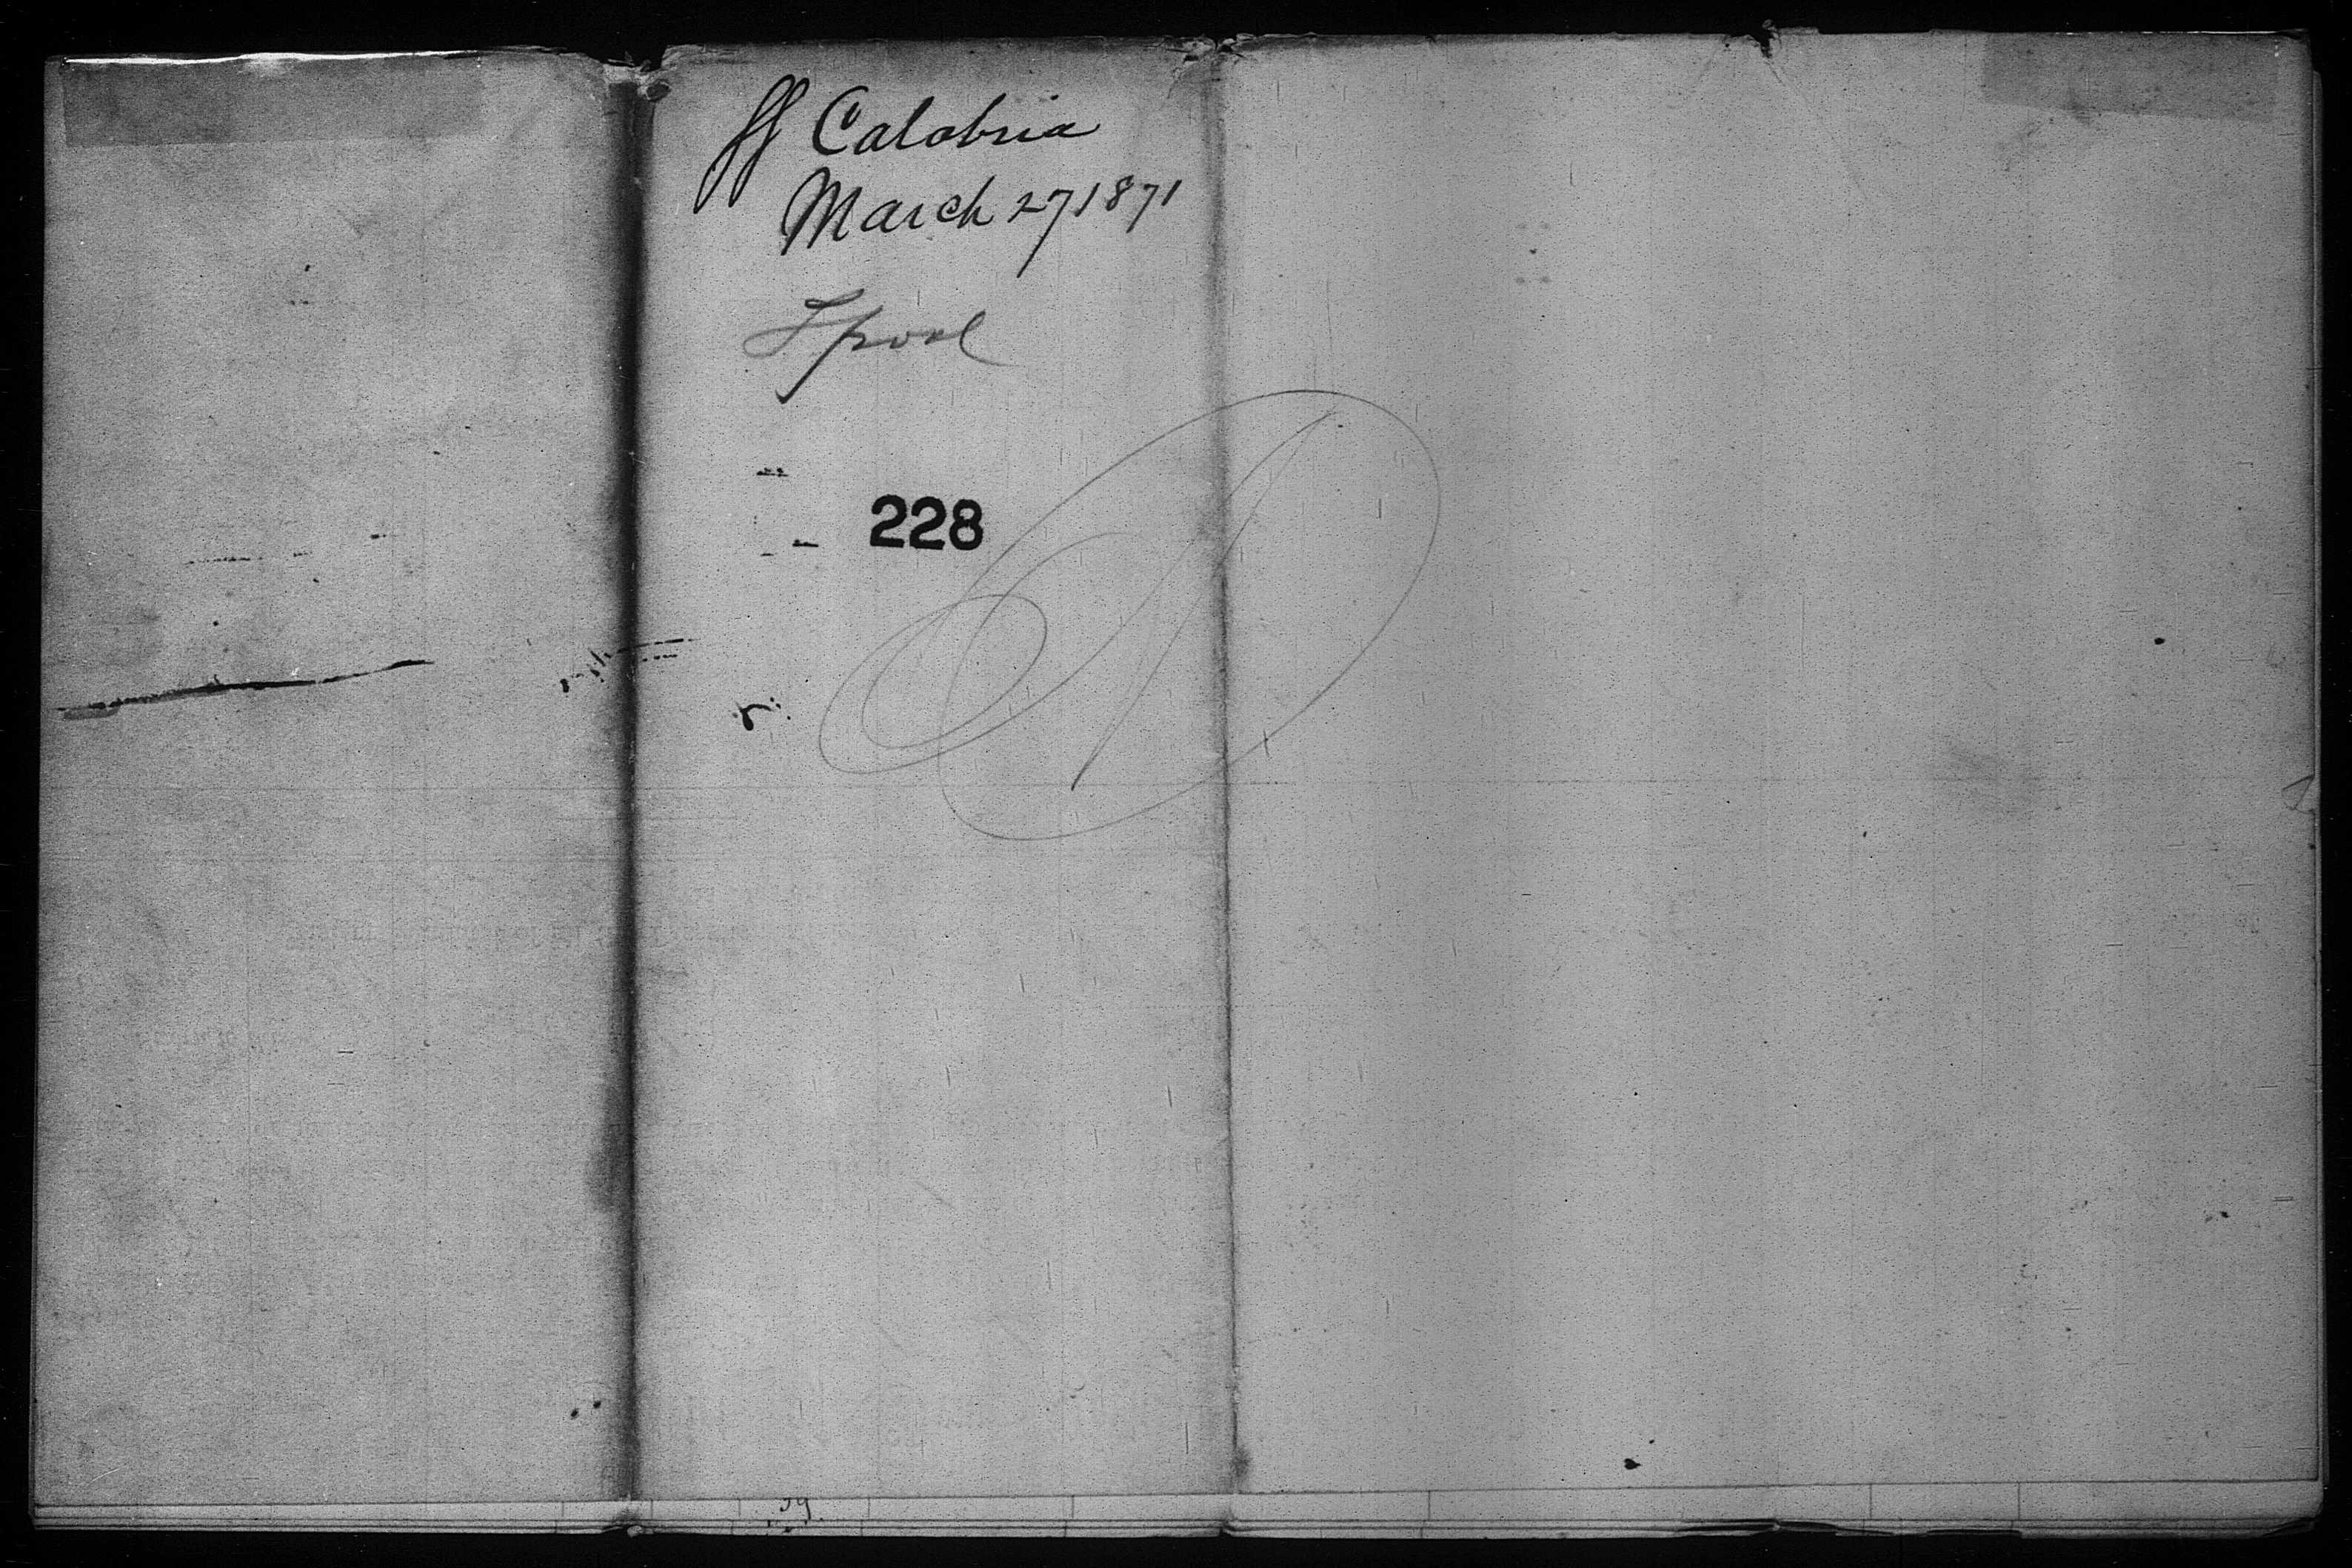 SS Calabria
March 27 1871
Lpool
228